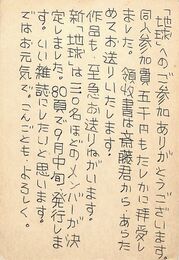 「地球」へのご参加ありがとうございます。
同人参加費五千円もたしかに拝受し
ました。領収書は斎藤君からあらた
めてお送りいたします。
作品も、至急お送りねがいます。
新「地球」は三〇名ほどのメンバーが決
定しました。80頁で9月中旬発行しま
す。いい雑誌にしたいと思います。
ではお元気で。こんごともよろしく。